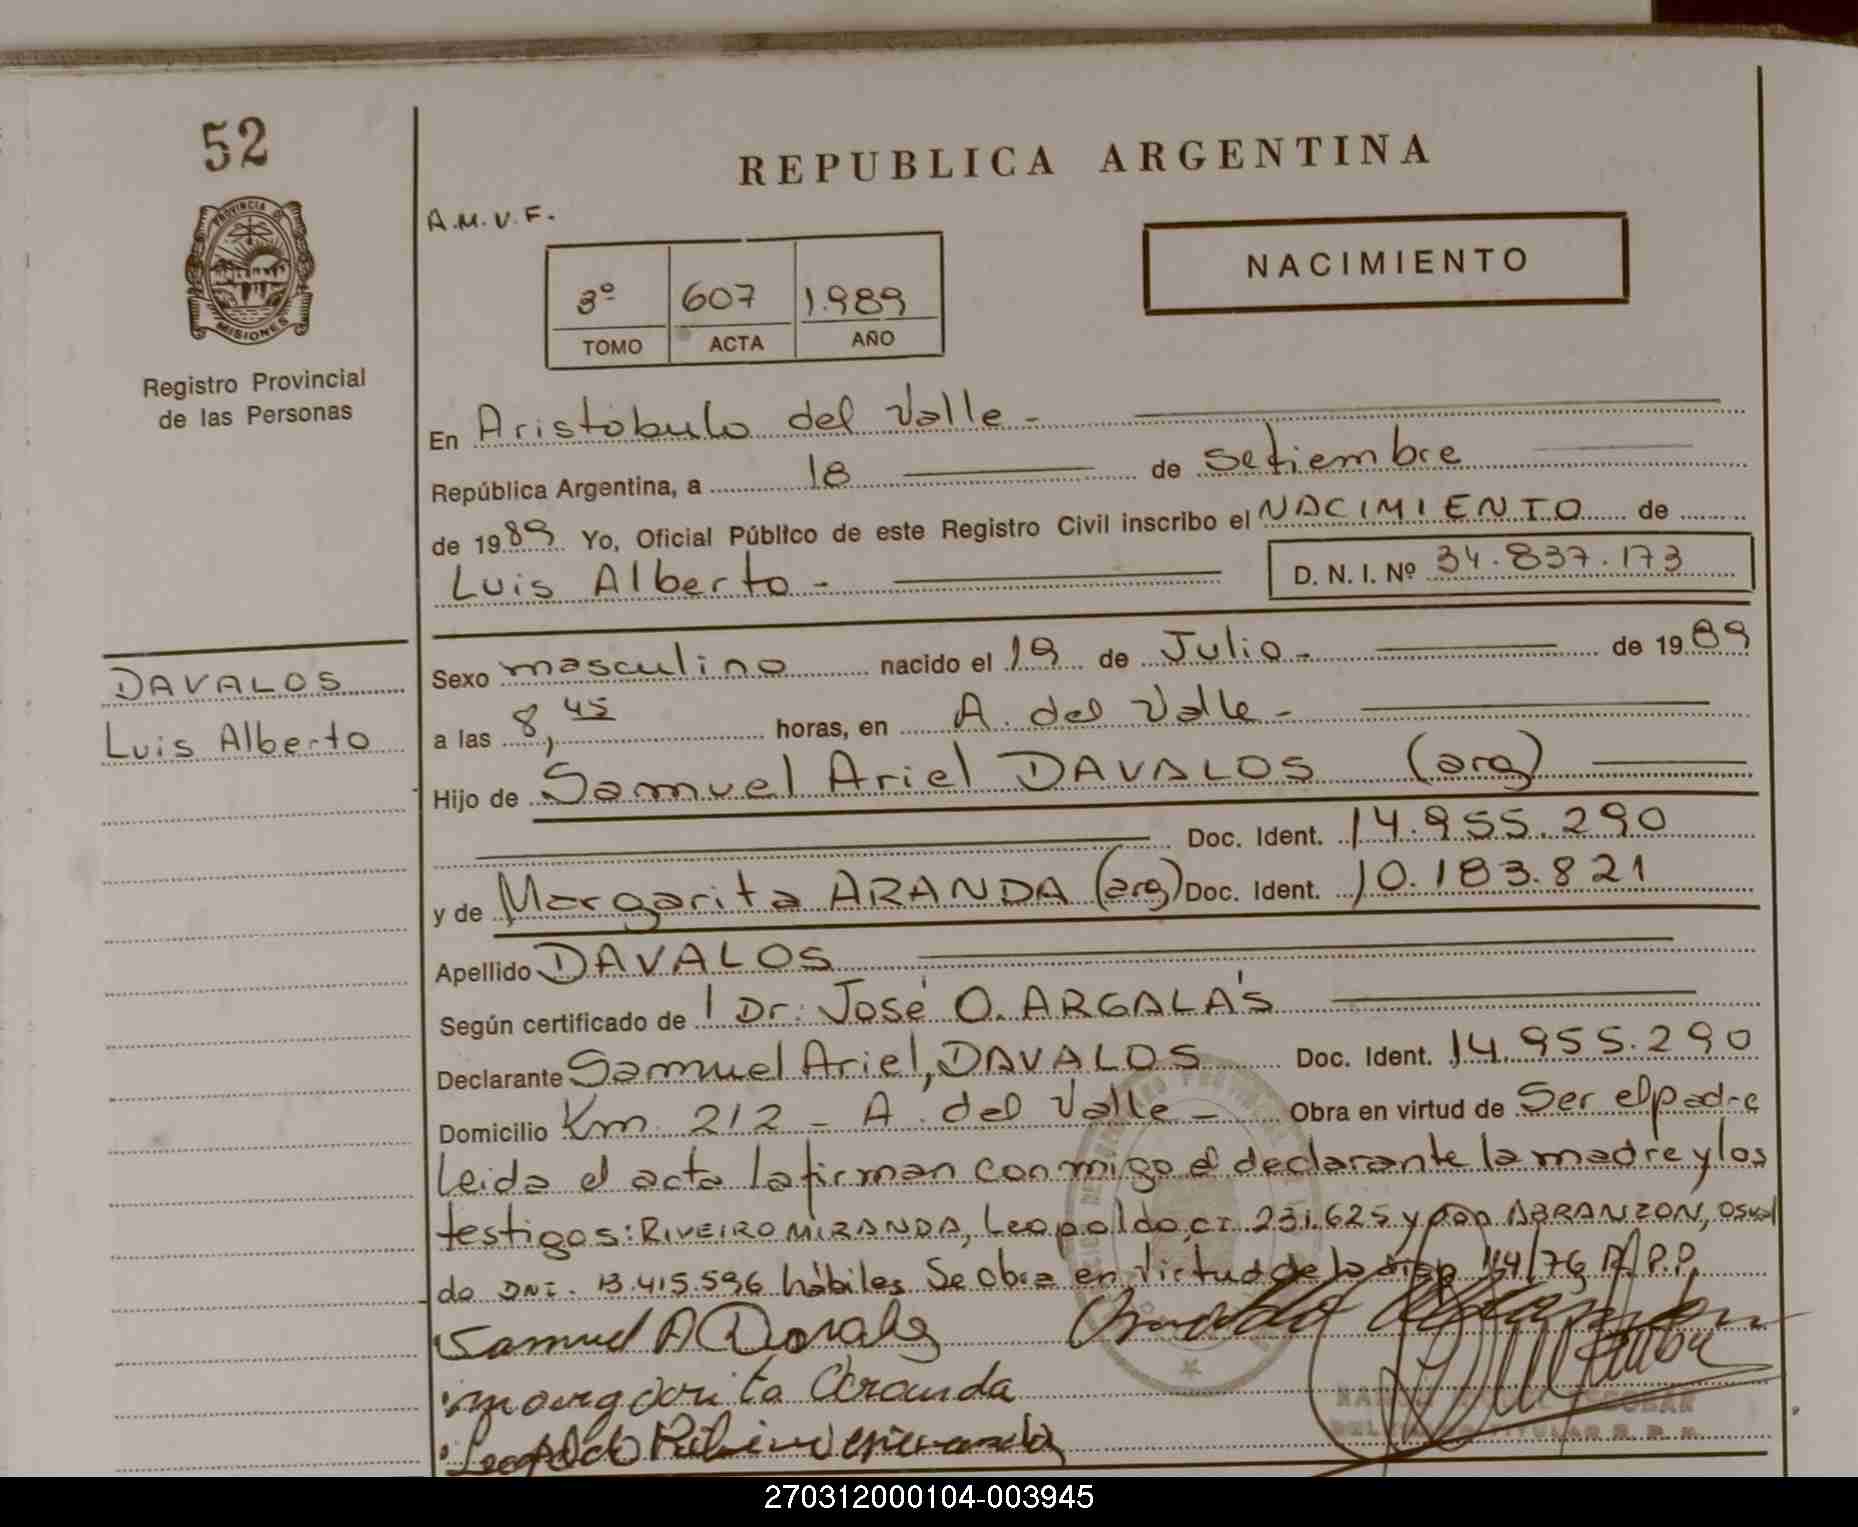 52
PROVINCIA DE
MISIONES
Registro Provincial
de las Personas
DAVALOS
Luis Alberto
REPUBLICA ARGENTINA
A.M.V.F.
NACIMIENTO
3º 607 1.989
TOMO ACTA AÑO
En Aristóbulo del Valle -
República Argentina, a 18 de Setiembre
de 1989 Yo, Oficial Público de este Registro Civil inscribo el NACIMIENTO de
Luis Alberto - D. N. I. Nº 34.837.173
Sexo masculino nacido el 19 de Julio - de 1989
a las 8,45 horas, en A. del Valle -
Hijo de Samuel Ariel DAVALOS (arg)
Doc. Ident. 14.955.290
y de Margarita ARANDA (arg) Doc. Ident. 10.183.821
Apellido DAVALOS
Según certificado de Dr: José O. ARGALÁS
Declarante Samuel Ariel, DAVALOS Doc. Ident. 14.955.290
Domicilio Km 212 - A. del Valle - Obra en virtud de Ser el padre
Leida el acta la firman conmigo el declarante la madre y los
testigos: RIVEIRO MIRANDA, Leopoldo, CI. 231.625 y don ABRANZON, Osval
do DNI. 13.415.596 hábiles. Se obra en virtud de la disp 114/76 R.P.P.
Samuel A Dovalos
margarita Aranda
Leopoldo
270312000104-003945